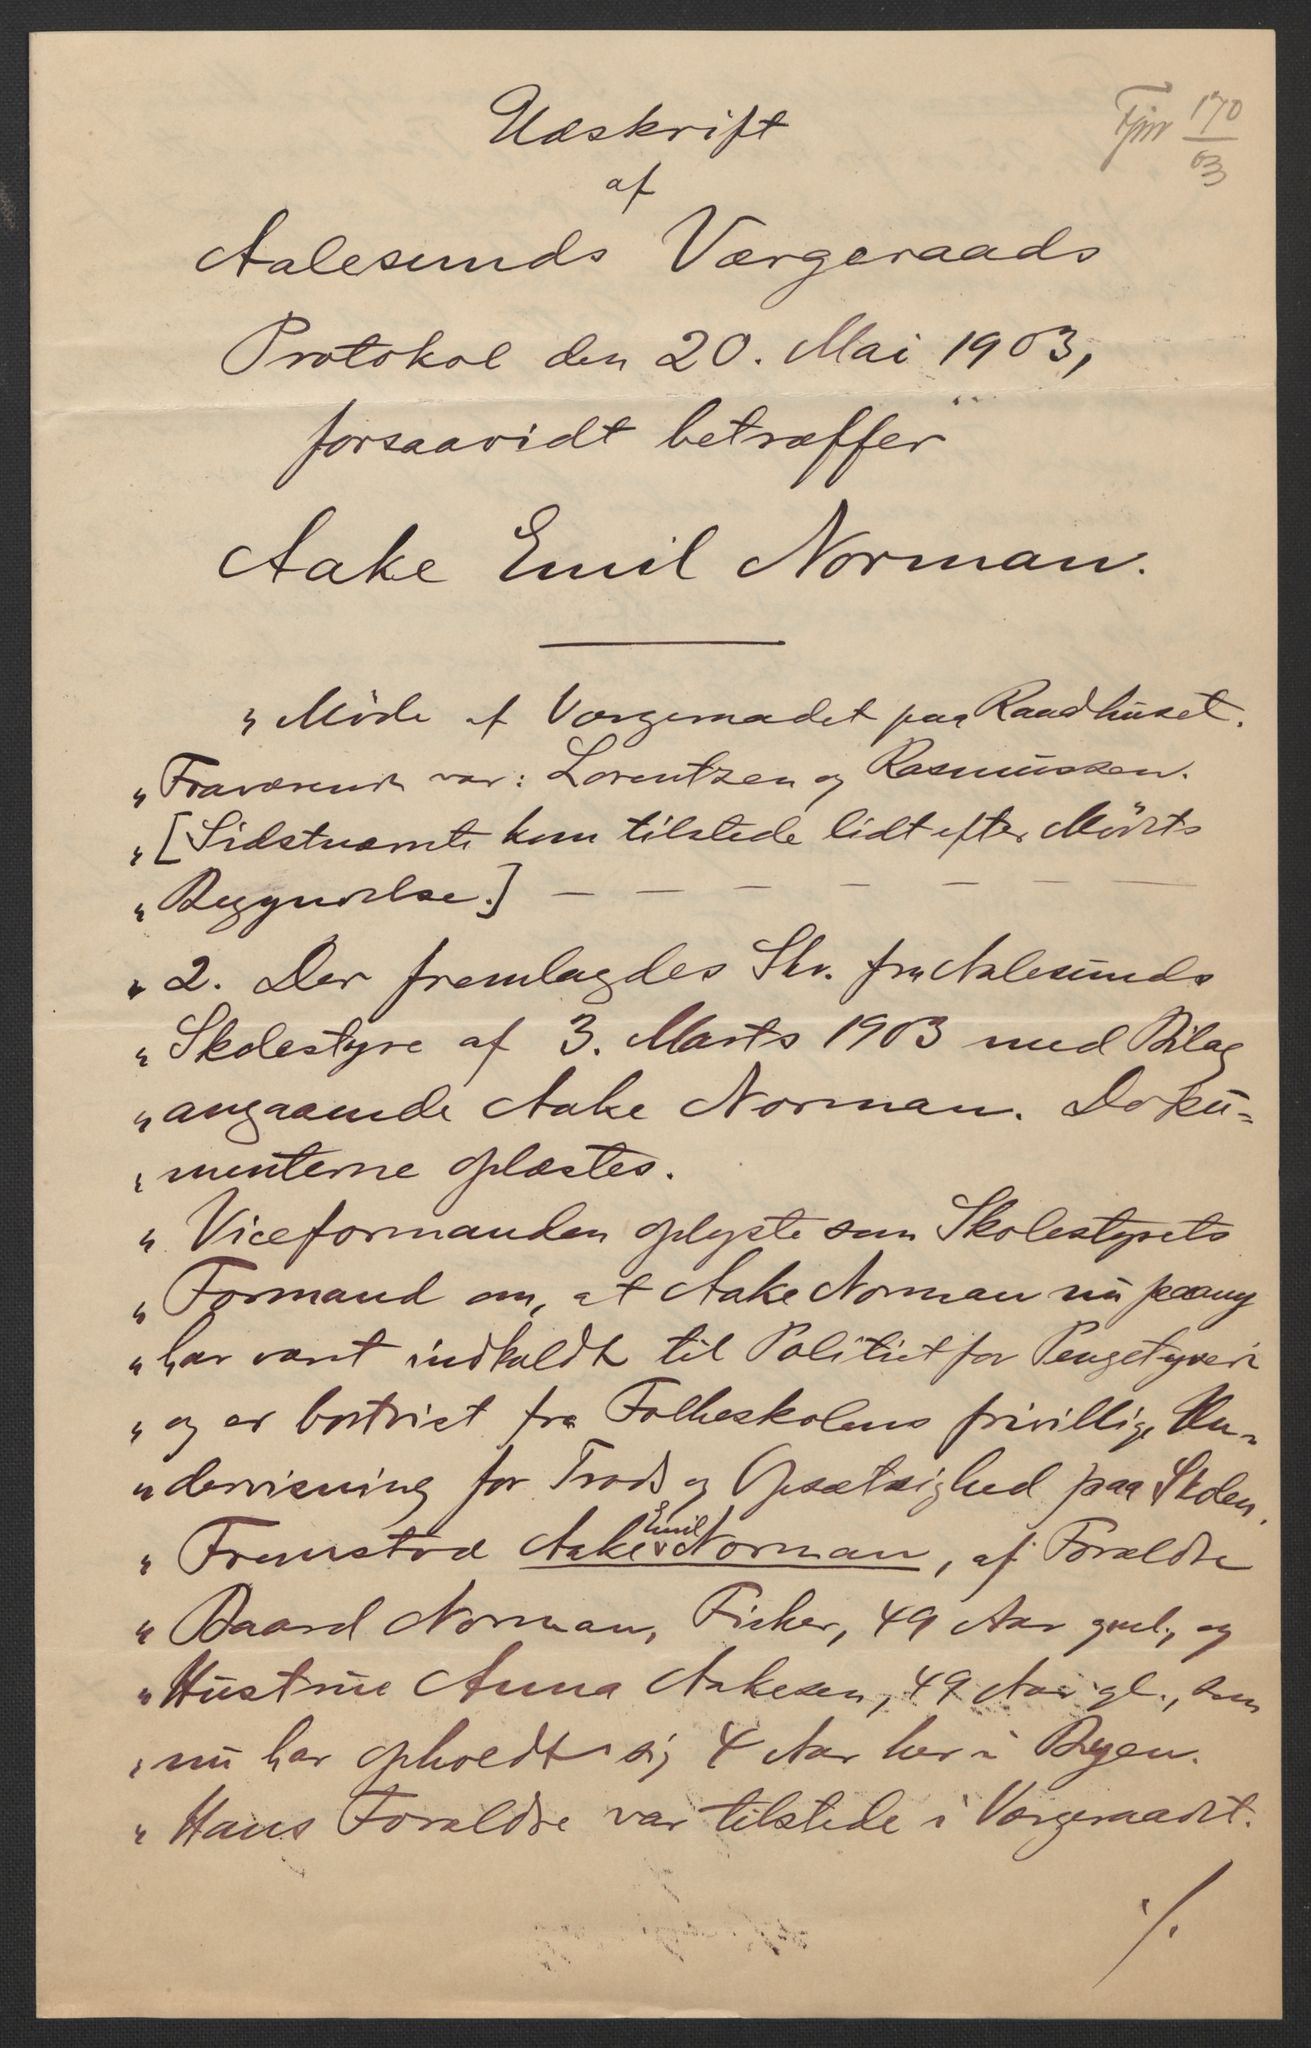 Udskrift
Fjnr 170/03
af
Aalesunds Værgeraads
Protokol den 20. Mai 1903,
forsaavidt betræffer
Aake Emil Norman.
„ Møde af Værgeraadet paa Raadhuset.
„ Fraværende var: Lorentzen og Rasmussen.
„ [Sidstnævnte kom tilstede lidt efter Mødets
„ Begyndelse.] — — — — — —
„ 2. Der fremlagdes Skr. fra Aalesunds
„ Skolestyre af 3. Marts 1903 med Bilag
„ angaaende Aake Norman. Doku=
„ menterne oplæstes.
„ Viceformanden oplyste som Skolestyrets
„ Formand om, at Aake Norman nu paany
„ har været indkaldt til Politiet for Pengetyveri
„ og er bortvist fra Folkeskolens frivillige Un=
„ dervisning for Trods og Opsætsighed paa Skolen.
„ Fremstod Aake Emil Norman, af Forældre
„ Baard Norman, Fisker, 49 Aar gml., og
„ Hustrue Anna Aakesen, 49 Aar gl., som
„ nu har opholdt sig 4 Aar her i Byen.
„ Hans Forældre var tilstede i Værgeraadet.
./.